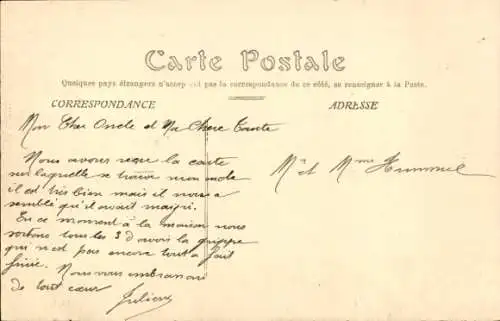 Carte Postale
Quelques pays étrangers n'accep ent pas la correspondance de ce côté, se renseigner à la Poste.
CORRESPONDANCE
ADRESSE
Mon Cher Oncle et Ma Chère Tante
Nous avons reçu la carte
sur laquelle se trouve mon oncle
il est très bien mais il nous a
semblé qu'il avait maigri.
En ce moment à la maison nous
sortons tous les 3 d'avoir la grippe
qui n'est pas encore tout à fait
finie. Nous vous embrassons
de tout cœur
Julien
Mr et Mme Hummel